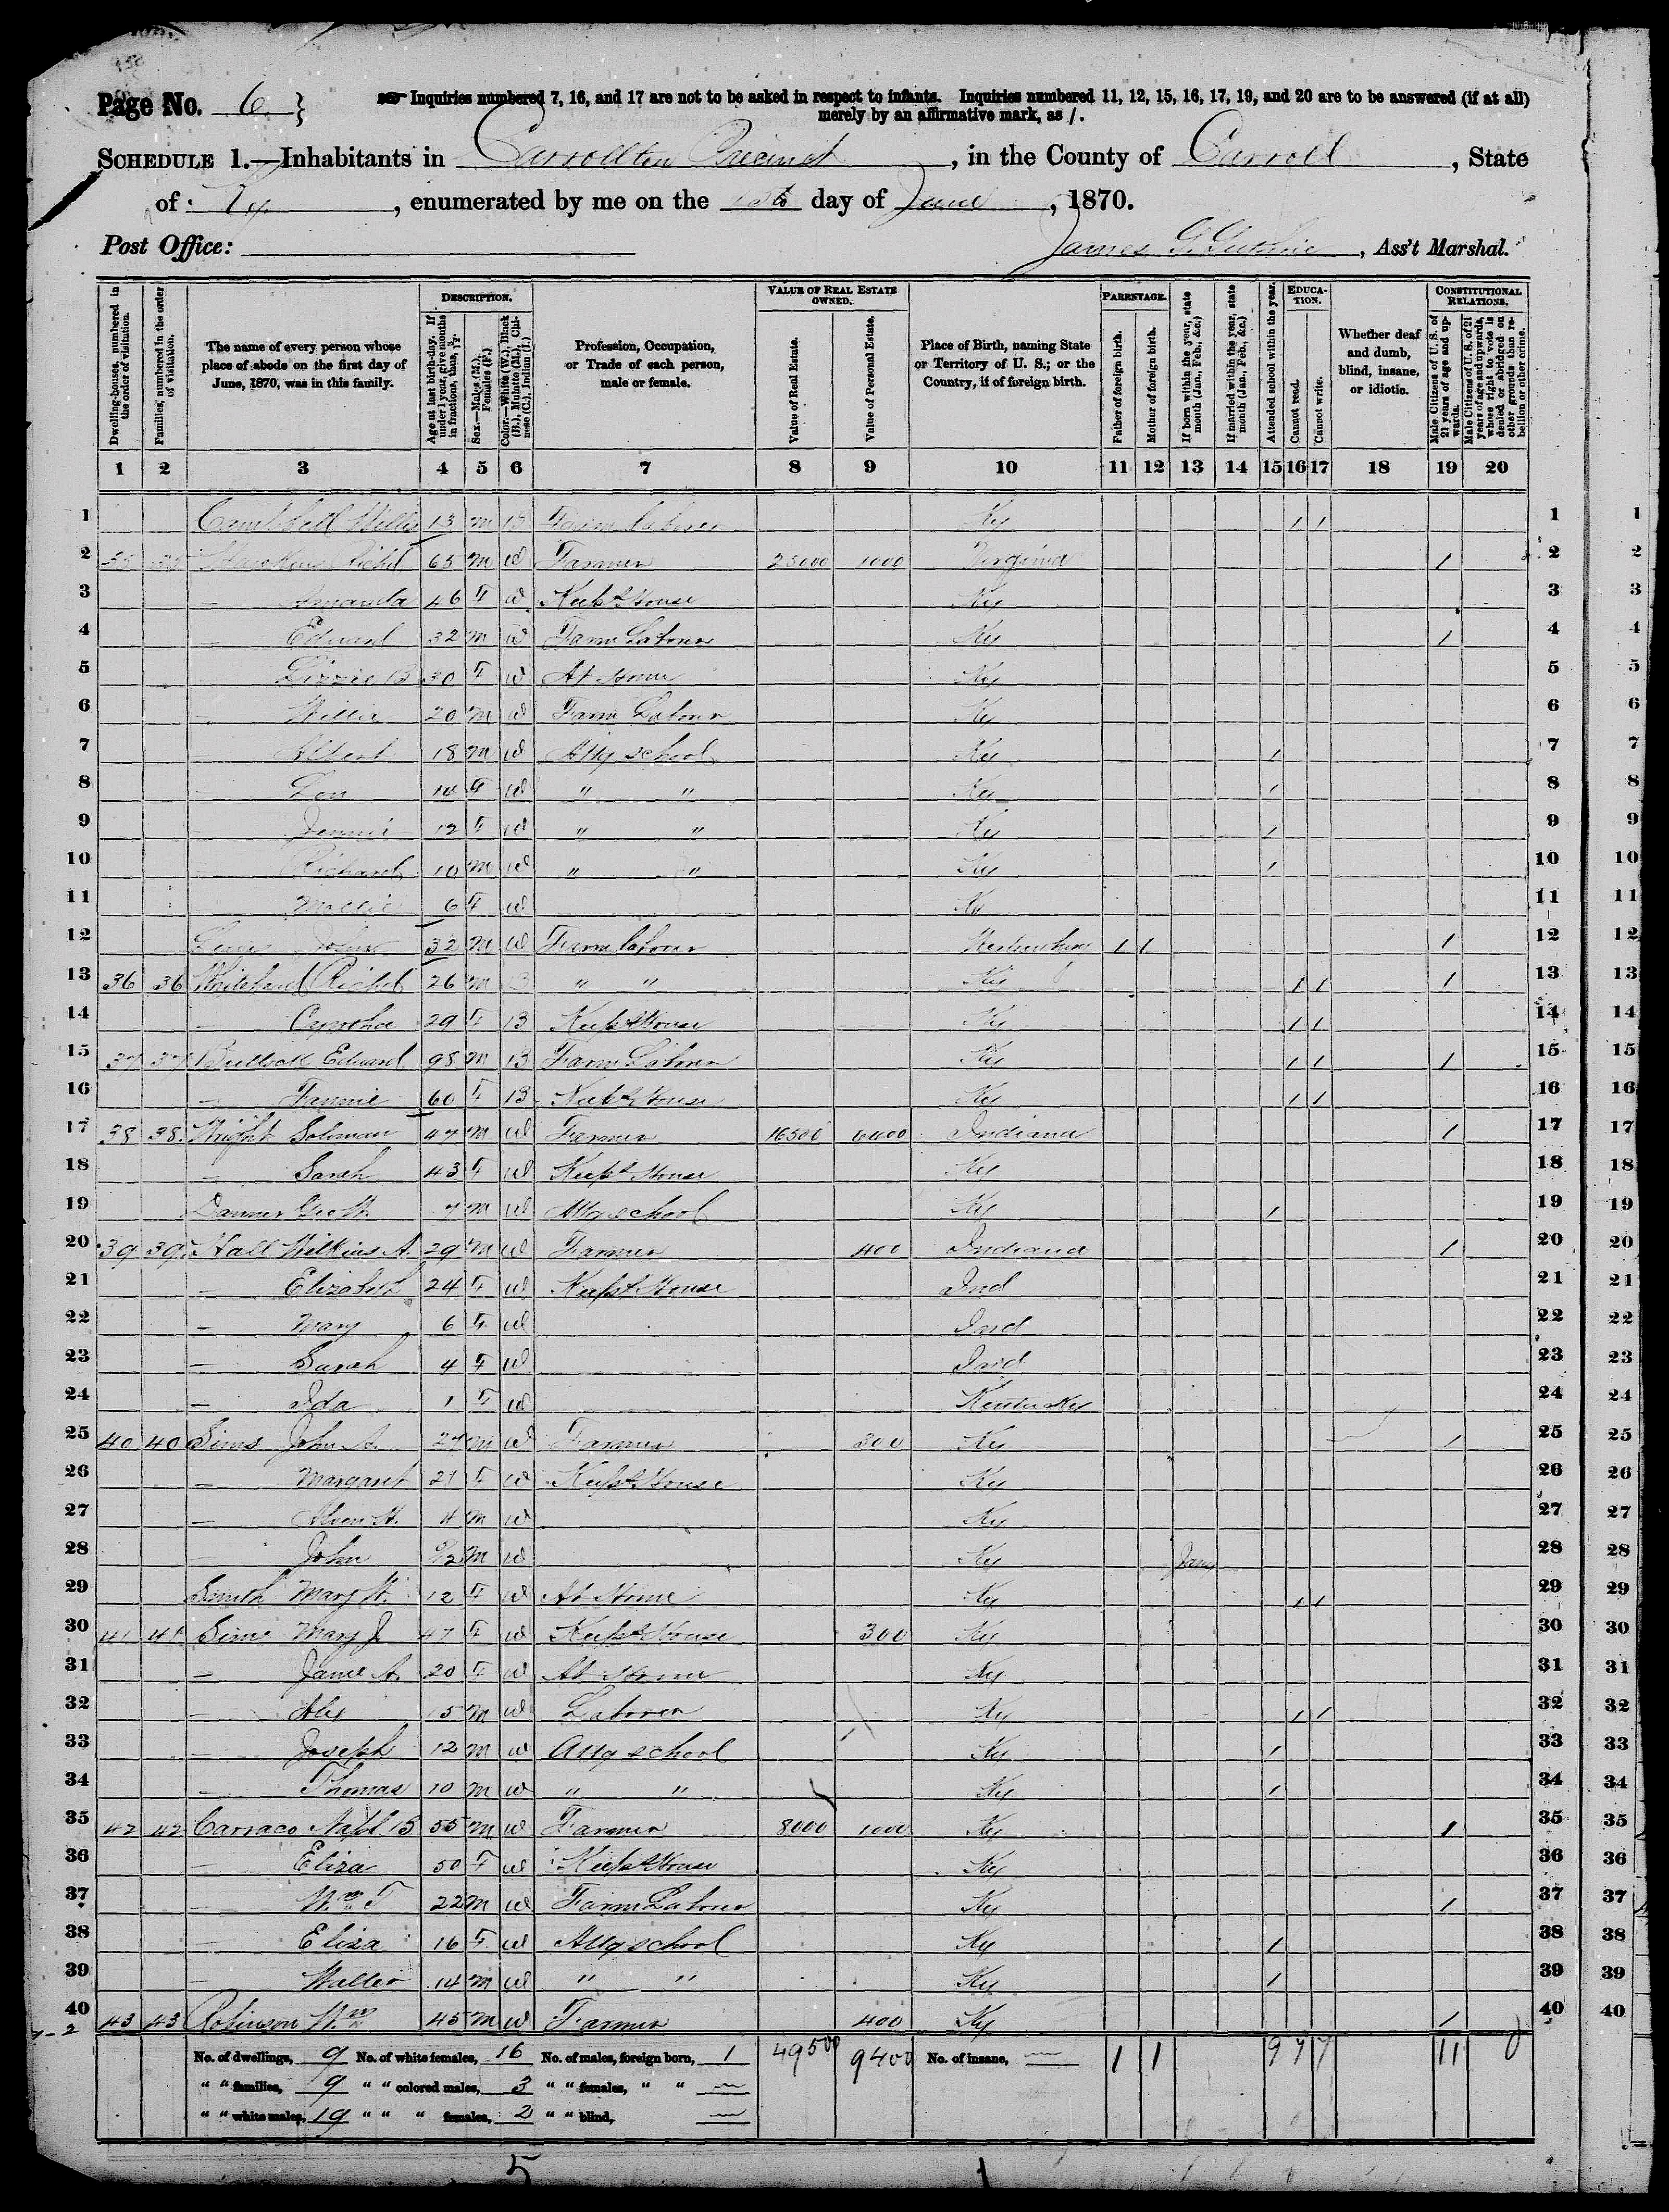 Page No. 6 }
Inquiries numbered 7, 16, and 17 are not to be asked in respect to infants. Inquiries numbered 11, 12, 15, 16, 17, 19, and 20 are to be answered (if at all)
merely by an affirmative mark, as /.
SCHEDULE 1.—Inhabitants in Carrollton Precinct, in the County of Carroll, State
of Ky, enumerated by me on the day of June, 1870.
Post Office:
James G. Guthrie, Ass't Marshal.
Dwelling-houses, numbered in the order of visitation.
Families, numbered in the order of visitation.
The name of every person whose place of abode on the first day of June, 1870, was in this family.
DESCRIPTION.
Age at last birth-day. If under 1 year, give months in fractions, thus, 3/12.
Sex.—Males (M.), Females (F.)
Color.—White (W.), Black (B.), Mulatto (M.), Chinese (C.), Indian (I.)
Profession, Occupation, or Trade of each person, male or female.
VALUE OF REAL ESTATE OWNED.
Value of Real Estate.
Value of Personal Estate.
Place of Birth, naming State or Territory of U. S.; or the Country, if of foreign birth.
PARENTAGE.
Father of foreign birth.
Mother of foreign birth.
If born within the year, state month (Jan., Feb., &c.)
If married within the year, state month (Jan., Feb., &c.)
Attended school within the year.
EDUCATION.
Cannot read.
Cannot write.
Whether deaf and dumb, blind, insane, or idiotic.
CONSTITUTIONAL RELATIONS.
Male Citizens of U. S. of 21 years of age and upwards.
Male Citizens of U. S. of 21 years of age and upwards, whose right to vote is denied or abridged on other grounds than rebellion or other crime.
1 2 3 4 5 6 7 8 9 10 11 12 13 14 15 16 17 18 19 20
1 Campbell Willis 13 M B Farm Laborer Ky / / 1
2 Hawkins Richd 65 M W Farmer 25000 1000 Virginia / 2
3 — Amanda 46 F W Keeps House Ky 3
4 — Edward 32 M W Farm Laborer Ky / 4
5 — Lizzie B 30 F W At Home Ky 5
6 — Willie 20 M W Farm Laborer Ky 6
7 — Albert 18 M W Attg school Ky / 7
8 — Lou 14 F W " " Ky / 8
9 — Jennie 12 F W " " Ky / 9
10 — Richard 10 M W " " Ky / 10
11 — Mollie 6 F W Ky 11
12 John 32 M W Farm laborer / / / 12
13 36 36 Whitehead Richd 26 M B " " Ky / / / 13
14 — Cyntha 29 F B Keeps House Ky / / 14
15 37 37 Bullock Edward 98 M B Farm Laborer Ky / / / 15
16 — Fannie 60 F B Keeps House Ky / / 16
17 38 38 Wright Soloman 47 M W Farmer 16500 6400 Indiana / 17
18 — Sarah 43 F W Keeps House Ky 18
19 Danner Geo W. 7 M W Attg school Ky / 19
20 39 39 Hall Wilkins A. 29 M W Farmer 400 Indiana / 20
21 — Elizabeth 24 F W Keeps House Ind 21
22 — Mary 6 F W Ind 22
23 — Sarah 4 F W Ind 23
24 — Ida 1 F W Kentucky 24
25 40 40 Sims John A. 27 M W Farmer 300 Ky / 25
26 — Margaret 21 F W Keeps House Ky 26
27 — 4 M W Ky 27
28 — John M W Ky Jany 28
29 Smith Mary 12 F W At Home Ky / / 29
30 41 41 Sims Mary J 47 F W Keeps House 300 Ky 30
31 — Jane A. 20 F W At Home Ky 31
32 — Alex 15 M W Laborer Ky / / 32
33 — Joseph 12 M W Attg school Ky / 33
34 — Thomas 10 M W " " Ky / 34
35 42 42 Carraco 55 M W Farmer 8000 1000 Ky / 35
36 — Eliza 50 F W Keeps House Ky 36
37 — Wm T 22 M W Farm Laborer Ky / 37
38 — Eliza 16 F W Attg school Ky / 38
39 — Walter 14 M W " " Ky / 39
40 43 43 Robinson Wm 45 M W Farmer 400 Ky / 40
No. of dwellings, 9 No. of white females, 16 No. of males, foreign born, 1 49500 9400 No. of insane, — 1 1 9 7 7 11 0
" " families, 9 " " colored males, 3 " " females, " " —
" " white males, 19 " " " females, 2 " " blind, —
5